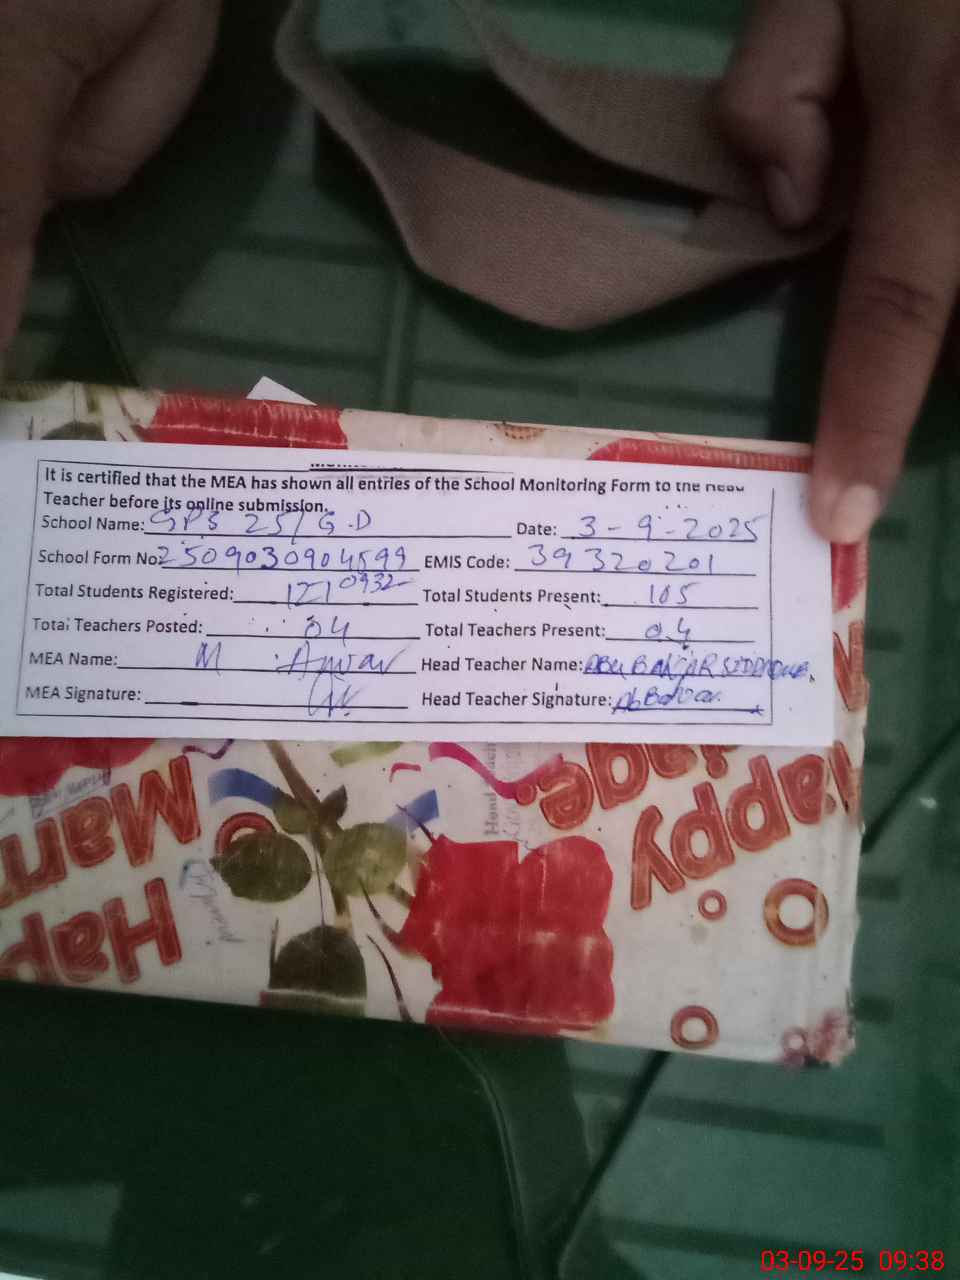 It is certified that the MEA has shown all entries of the School Monitoring Form to the Head
Teacher before its online submission.
School Name: GPS 25/G.D Date: 3-9-2025
School Form No: 2509030904599 EMIS Code: 39320201
0932
Total Students Registered: 121 Total Students Present: 105
Total Teachers Posted: 04 Total Teachers Present: 04
MEA Name: M Anwar Head Teacher Name: ABU BAKAR SIDDIQUE
MEA Signature: Head Teacher Signature: AbBakar
Happy
Marriage
Happy
03-09-25 09:38